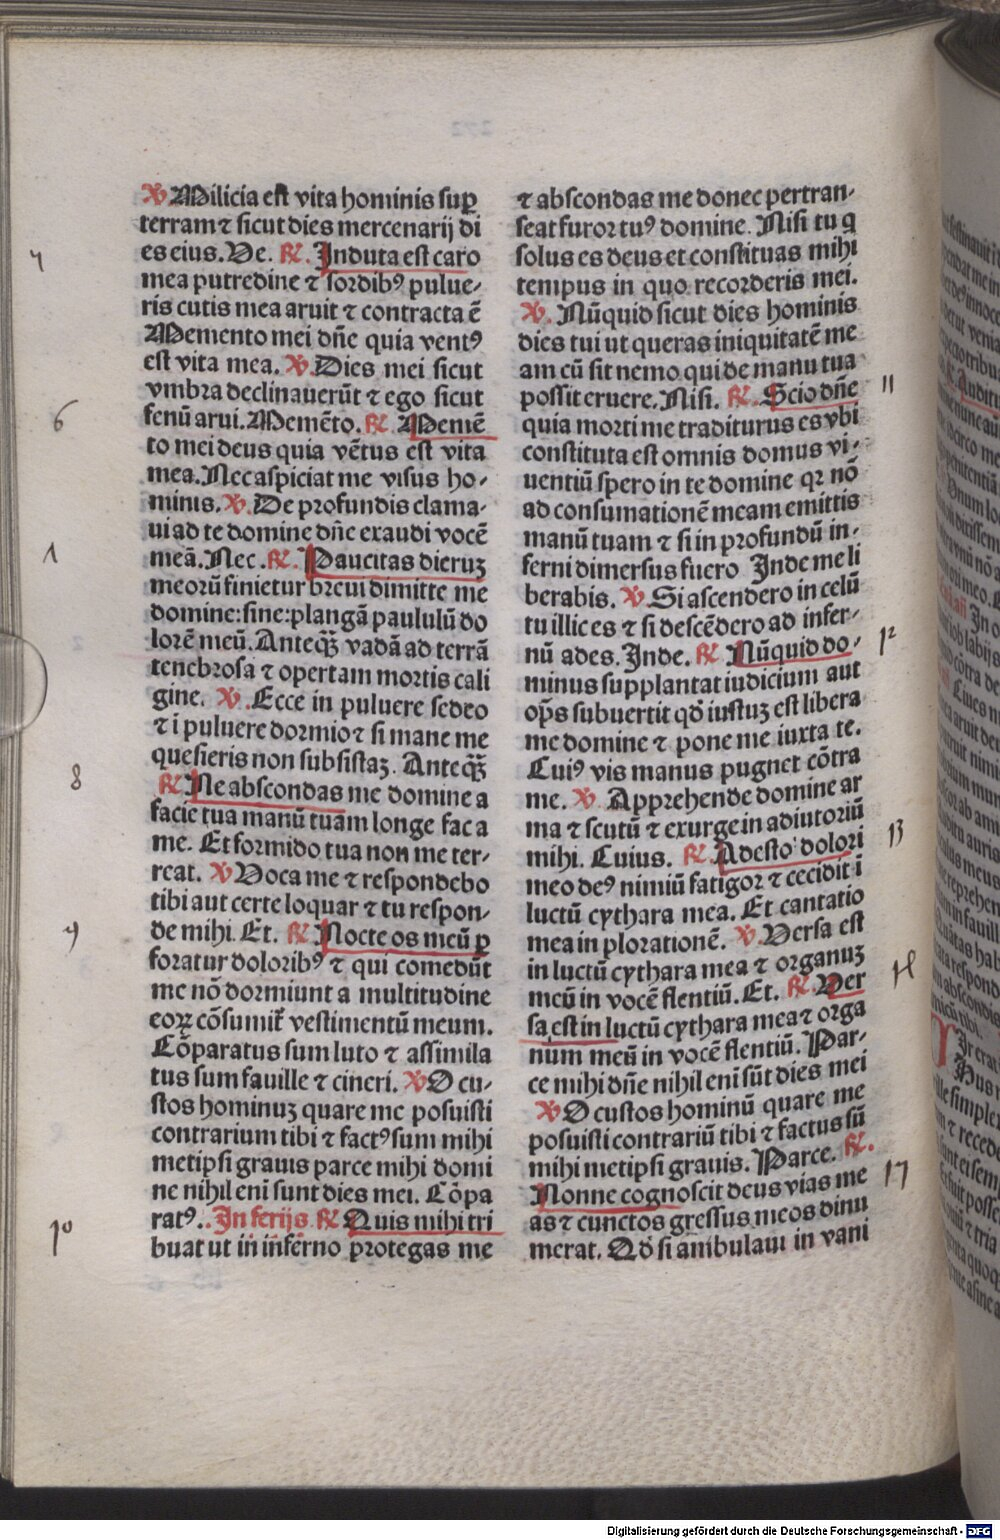 ℣ Milicia est vita hominis suꝑ
terram ⁊ sicut dies mercenarij di
es eius. Ve. ℟. Induta est caro
mea putredine ⁊ sordibꝰ pulue-
ris cutis mea aruit ⁊ contracta ē
Memento mei dn̄e quia ventꝰ
est vita mea. ℣. Dies mei sicut
vmbra declinauerūt ⁊ ego sicut
fenū arui. Memēto. ℟. Memē
to mei deus quia vētus est vita
mea. Nec aspiciat me visus ho-
minis. ℣. De profundis clama-
ui ad te domine dn̄e exaudi vocē
meā. Nec. ℟. Paucitas dieruꝫ
meorū finietur breui dimitte me
domine: sine: plangā paululū do
lorē meū. Anteqꝫ̄ vadā ad terrā
tenebrosa ⁊ opertam mortis cali
gine. ℣. Ecce in puluere sedeo
⁊ i puluere dormio ⁊ si mane me
quesieris non subsistaꝫ. Anteqꝫ̄
℟ Ne abscondas me domine a
facie tua manū tuam longe fac a
me. Et formido tua non me ter-
reat. ℣ Voca me ⁊ respondebo
tibi aut certe loquar ⁊ tu respon-
de mihi. Et. ℟ Nocte os meū ꝑ
foratur doloribꝰ ⁊ qui comedūt
me nō dormiunt a multitudine
eoꝝ cōsumit᷑ vestimentū meum.
Cōparatus sum luto ⁊ assimila
tus sum fauille ⁊ cineri. ℣ O cu-
stos hominuꝫ quare me posuisti
contrarium tibi ⁊ factꝰ sum mihi
metipsi grauis parce mihi domi
ne nihil eni sunt dies mei. Cōpa
ratꝰ. In ferijs. ℟ Quis mihi tri
buat ut in inferno protegas me
⁊ abscondas me donec pertran-
seat furor tuꝰ domine. Nisi tu q
solus es deus et constituas mihi
tempus in quo recorderis mei.
℣. Nūquid sicut dies hominis
dies tui ut queras iniquitatē me
am cū sit nemo qui de manu tua
possit eruere. Nisi. ℟. Scio dn̄e
quia morti me traditurus es vbi
constituta est omnis domus vi-
uentiū spero in te domine qꝛ nō
ad consumationē meam emittis
manū tuam ⁊ si in profundū in-
ferni dimersus fuero Inde me li
berabis. ℣. Si ascendero in celū
tu illic es ⁊ si descēdero ad infer-
nū ades. Inde. ℟ Nūquid do-
minus supplantat iudicium aut
op̄s subuertit qd̄ iustuꝫ est libera
me domine ⁊ pone me iuxta te.
Cuiꝰ vis manus pugnet cōtra
me. ℣ Apprehende domine ar
ma ⁊ scutū ⁊ exurge in adiutoriū
mihi. Cuius. ℟ Adesto dolori
meo deꝰ nimiū fatigor ⁊ cecidit ī
luctū cythara mea. Et cantatio
mea in plorationē. ℣. Versa est
in luctū cythara mea ⁊ organuꝫ
meū in vocē flentiū. Et. ℟. Ver
sa est in luctū cythara mea ⁊ orga
num meū in vocē flentiū. Par-
ce mihi dn̄e nihil eni sūt dies mei
℣ O custos hominū quare me
posuisti contrariū tibi ⁊ factus sū
mihi metipsi grauis. Parce. ℟.
Nonne cognoscit deus vias me
as ⁊ cunctos gressus meos dinu
merat. Qd̄ si ambulaui in vani
6
1
8
9
10
11
12
13
Digitalisierung gefördert durch die Deutsche Forschungsgemeinschaft - DFG